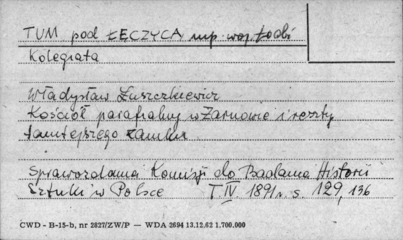 TUM pod ŁĘCZYCĄ woj Łódź
Kolegiata
Władysław Łuszczkiewicz
Kościół parafialny w Żarnowie i reszty
tamtejszego zamku
Sprawozdania Komisji do Badania Historii
Sztuki w Polsce T. IV 1891 r. s. 129, 136
CWD - B-15-b, nr 2827/ZW/P — WDA 2694 13.12.62 1.700.000